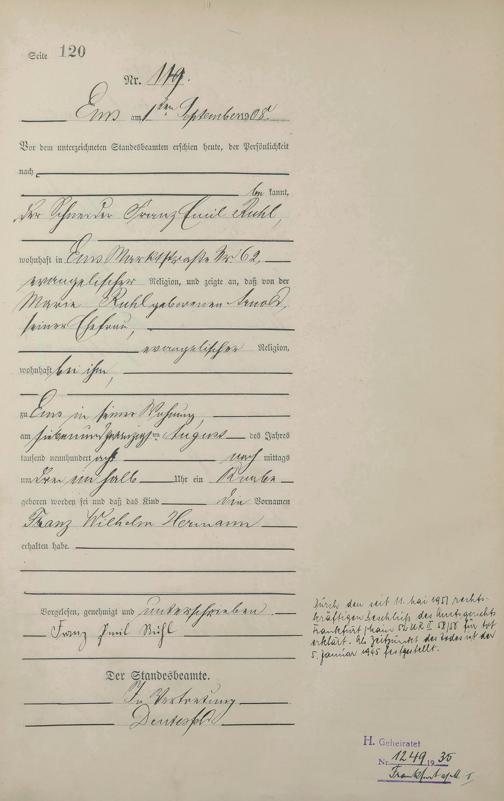 Seite 120
Nr. 119.
Ems am 1ten September 1908.
Vor dem unterzeichneten Standesbeamten erschien heute, der Persönlichkeit
nach
be kannt,
der Schneider Franz Emil Rühl,
wohnhaft in Ems Marktstraße Nr 62,
evangelischer Religion, und zeigte an, daß von der
Marie Rühl geborenen Arnold,
seiner Ehefrau,
evangelischer Religion,
wohnhaft bei ihm,
zu Ems in seiner Wohnung,
am siebenundzwanzigten August des Jahres
tausend neunhundert acht nach mittags
um drei ein halb Uhr ein Knabe
geboren worden sei und daß das Kind die Vornamen
Franz Wilhelm Hermann
erhalten habe.
Vorgelesen, genehmigt und unterschrieben
Franz Emil Rühl
Der Standesbeamte.
In Vertretung
Durch den seit 11. Mai 1951 rechts-
kräftigen Beschluß des Amtsgerichts
Frankfurt/Main für tot
erklärt. Als Zeitpunkt des Todes ist der
5. Januar 1945 festgestellt.
H. Geheiratet
Nr. 1249 1935
Frankfurt a/M I